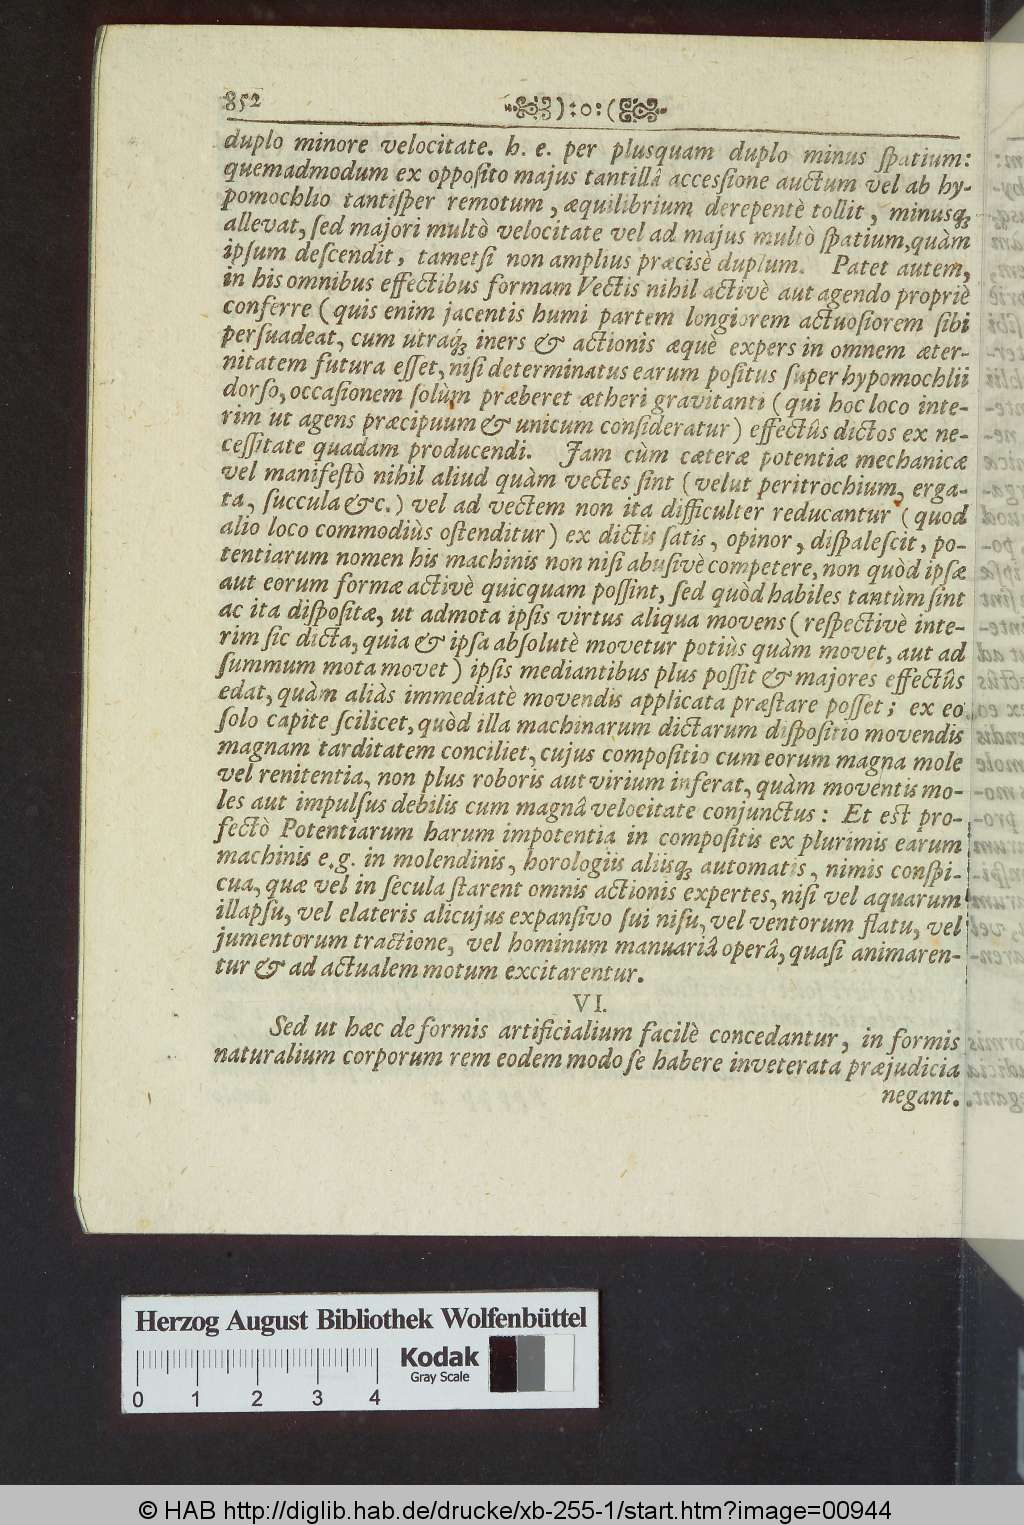 852 ):o:(
duplo minore velocitate. h. e. per plusquam duplo minus ſpatium:
quemadmodum ex oppoſito majus tantillâ acceſſione auctum vel ab hy-
pomochlio tantiſper remotum, æquilibrium derepentè tollit, minusq́ꝫ
allevat, ſed majori multò velocitate vel ad majus multò ſpatium, quàm
ipſum deſcendit, tametſi non amplius præcisè duplum. Patet autem,
in his omnibus effectibus formam Vectis nihil activè aut agendo propriè
conferre (quis enim jacentis humi partem longiorem actuoſiorem ſibi
perſuadeat, cum utraq́ꝫ iners & actionis æquè expers in omnem æter-
nitatem futura eſſet, niſi determinatus earum poſitus ſuper hypomochlii
dorſo, occaſionem ſolùm præberet ætheri gravitanti (qui hoc loco inte-
rim ut agens præcipuum & unicum conſideratur) effectûs dictos ex ne-
ceſſitate quadam producendi. Jam cùm cæteræ potentiæ mechanicæ
vel manifeſtò nihil aliud quàm vectes ſint (velut peritrochium, erga-
ta, ſuccula &c.) vel ad vectem non ita difficulter reducantur (quod
alio loco commodiùs oſtenditur) ex dictis ſatis, opinor, diſpaleſcit, po-
tentiarum nomen his machinis non niſi abuſivè competere, non quòd ipſæ
aut eorum formæ activè quicquam poſſint, ſed quòd habiles tantùm ſint
ac ita diſpoſitæ, ut admota ipſis virtus aliqua movens (reſpectivè inte-
rim ſic dicta, quia & ipſa abſolutè movetur potiùs quàm movet, aut ad
ſummum mota movet) ipſis mediantibus plus poſſit & majores effectûs
edat, quàm aliàs immediatè movendis applicata præſtare poſſet; ex eo
ſolo capite ſcilicet, quòd illa machinarum dictarum diſpoſitio movendis
magnam tarditatem conciliet, cujus compoſitio cum eorum magna mole
vel renitentia, non plus roboris aut virium inferat, quàm moventis mo-
les aut impulſus debilis cum magnâ velocitate conjunctus: Et eſt pro-
fectò Potentiarum harum impotentia in compoſitis ex plurimis earum
machinis e.g. in molendinis, horologiis aliisq́ꝫ automatis, nimis conſpi-
cua, quæ vel in ſecula ſtarent omnis actionis expertes, niſi vel aquarum
illapſu, vel elateris alicujus expanſivo ſui niſu, vel ventorum flatu, vel
jumentorum tractione, vel hominum manuariâ operâ, quaſi animaren-
tur & ad actualem motum excitarentur.
VI.
Sed ut hæc de formis artificialium facilè concedantur, in formis
naturalium corporum rem eodem modo ſe habere inveterata præjudicia
negant.
Herzog August Bibliothek Wolfenbüttel
Kodak
Gray Scale
0 1 2 3 4
© HAB http://diglib.hab.de/drucke/xb-255-1/start.htm?image=00944